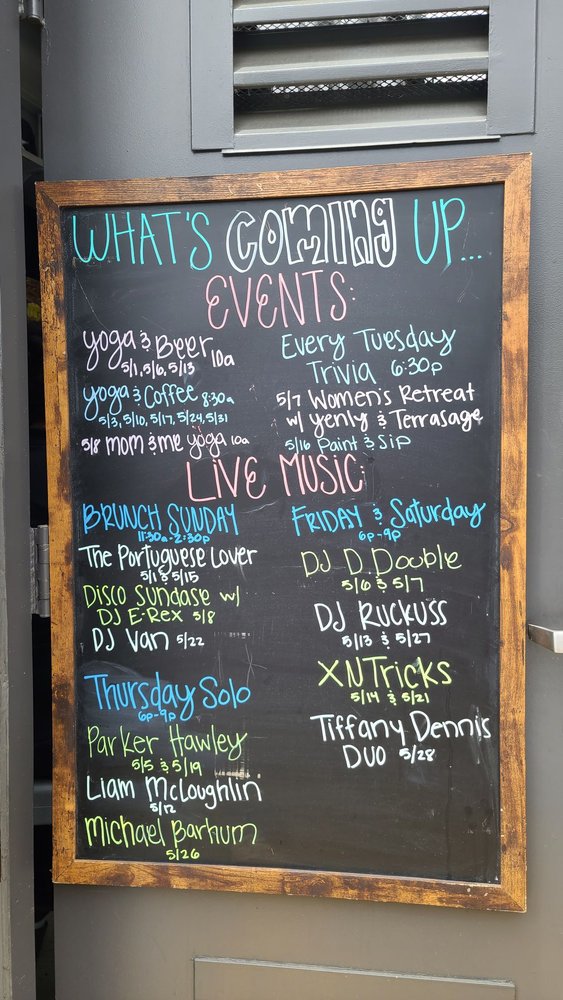 WHAT'S COMING UP...
EVENTS:
yoga & Beer 10a
5/1, 5/6, 5/13
yoga & Coffee 8:30a
5/3, 5/10, 5/17, 5/24, 5/31
5/8 mom & me yoga 10a
Every Tuesday
Trivia 6:30p
5/7 Women's Retreat
w/ yenly & Terrasage
5/16 Paint & Sip
LIVE MUSIC:
BRUNCH SUNDAY
11:30a-2:30p
The Portuguese Lover
5/1 & 5/15
Disco Sundase w/
DJ E-Rex 5/8
DJ Van 5/22
Thursday Solo
6p-9p
Parker Hawley
5/5 & 5/19
Liam McLoughlin
5/12
Michael Barhum
5/26
FRIDAY & Saturday
6p-9p
DJ D. Double
5/6 & 5/7
DJ RUCKUSS
5/13 & 5/27
XNTricks
5/14 & 5/21
Tiffany Dennis
DUO 5/28